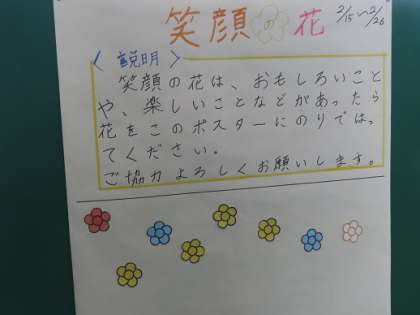 笑顔の花 2/15〜2/26
<説明>
笑顔の花は、おもしろいこと
や、楽しいことなどがあったら
花をこのポスターにのりではっ
てください。
ご協力よろしくお願いします。